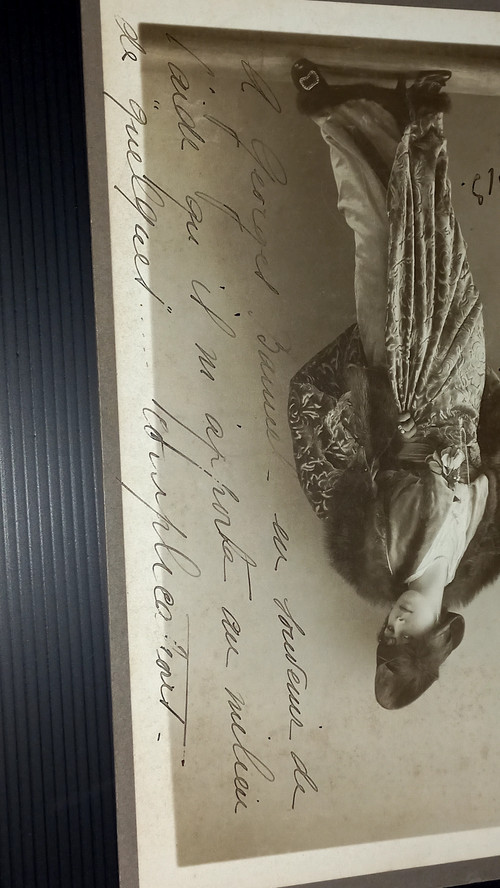 A Georges Baunel - en souvenir de
l'aide qu'il m'apporta au milieu
de "quelques"..... complications -